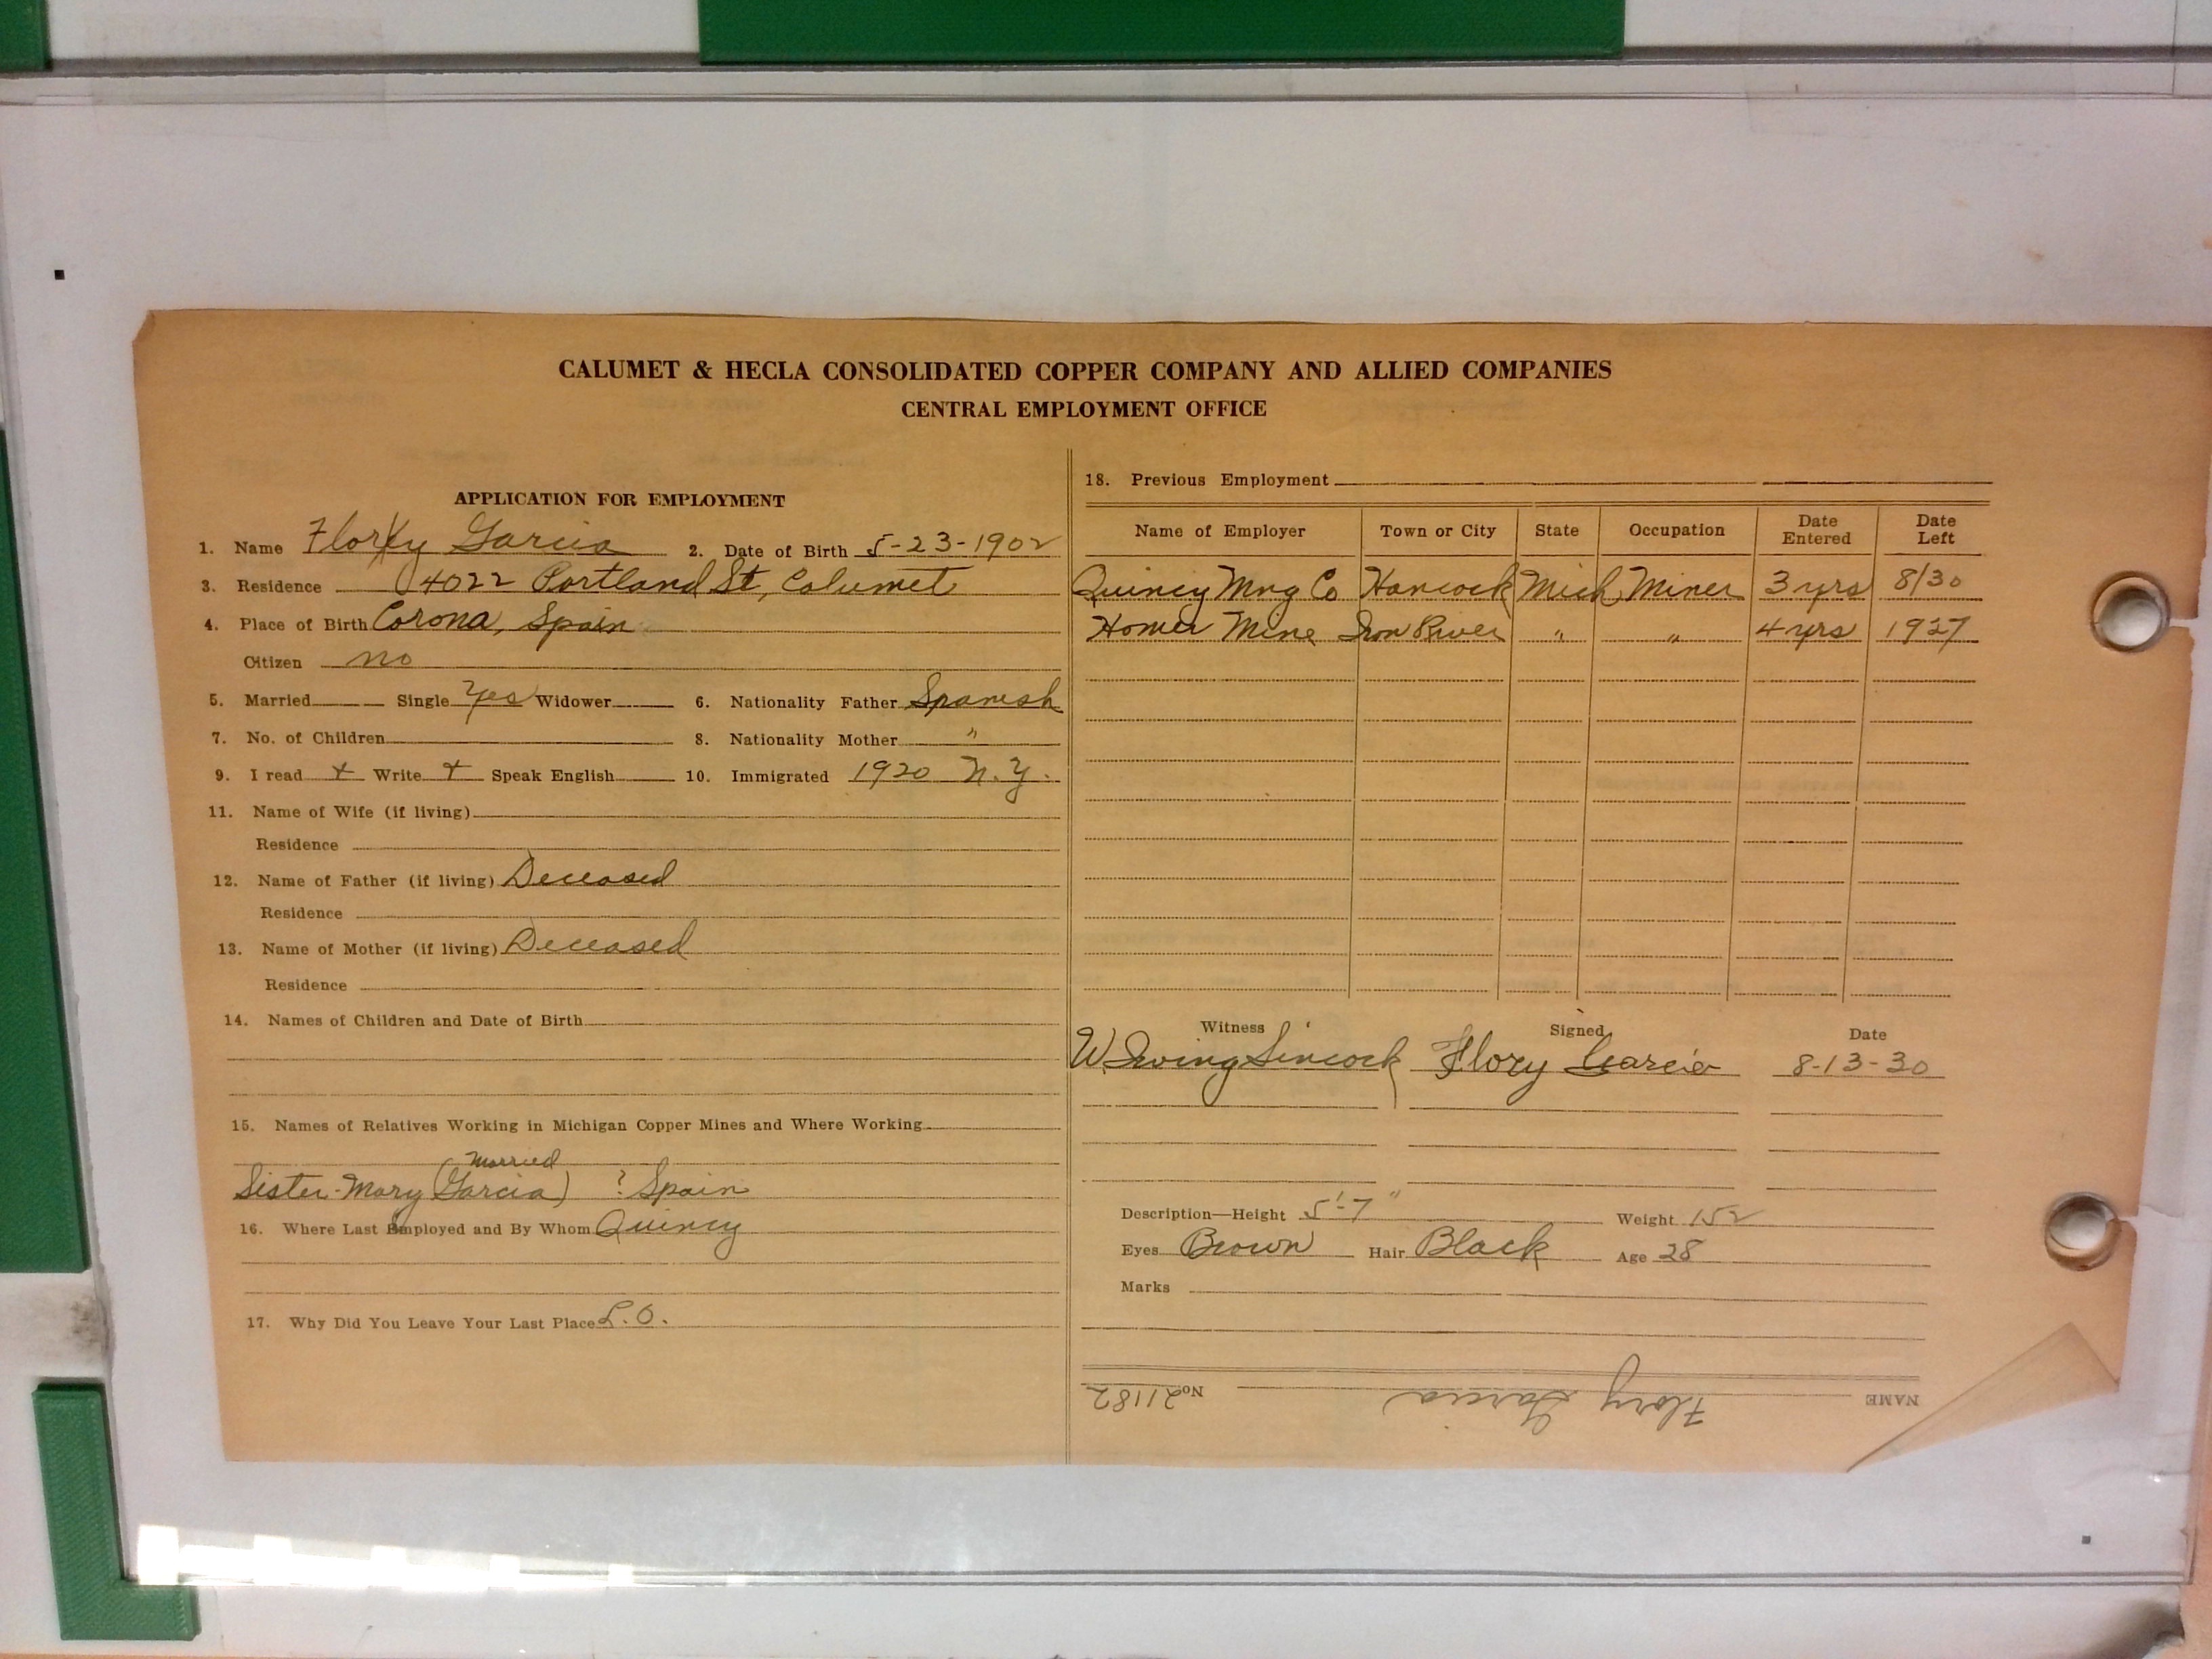 CALUMET & HECLA CONSOLIDATED COPPER COMPANY AND ALLIED COMPANIES
CENTRAL EMPLOYMENT OFFICE
APPLICATION FOR EMPLOYMENT
1. Name Flory Garcia 2. Date of Birth 5-23-1902
3. Residence 4022 Portland St, Calumet
4. Place of Birth Corona, Spain
Citizen no
5. Married Single Yes Widower 6. Nationality Father Spanish
7. No. of Children 8. Nationality Mother "
9. I read + Write + Speak English 10. Immigrated 1920 N.Y.
11. Name of Wife (if living)
Residence
12. Name of Father (if living) Deceased
Residence
13. Name of Mother (if living) Deceased
Residence
14. Names of Children and Date of Birth
15. Names of Relatives Working in Michigan Copper Mines and Where Working
Married
Sister-Mary (Garcia) ? Spain
16. Where Last Employed and By Whom Quincy
17. Why Did You Leave Your Last Place L.O.
18. Previous Employment
Name of Employer Town or City State Occupation Date Entered Date Left
Quincy Mng Co Hancock Mich Miner 3 yrs 8/30
Homer Mine Iron River " " 4 yrs 1927
Witness Signed Date
W. Irving Sincock Flory Garcia 8-13-30
Description—Height 5'-7" Weight 152
Eyes Brown Hair Black Age 28
Marks
NAME Flory Garcia No 21182